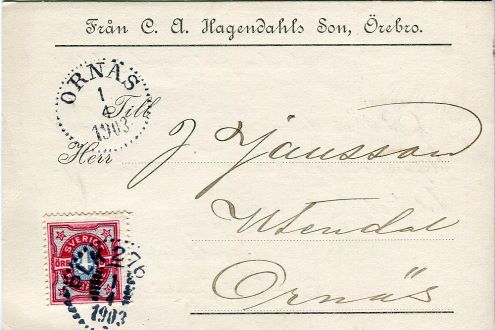 Från C. A. Hagendahls Son, Örebro.
ORNÄS
1
4
1903
Till
Herr J. Jansson
Utendal
Ornäs
SVERIGE
ÖRE 4
276
1
4
1903